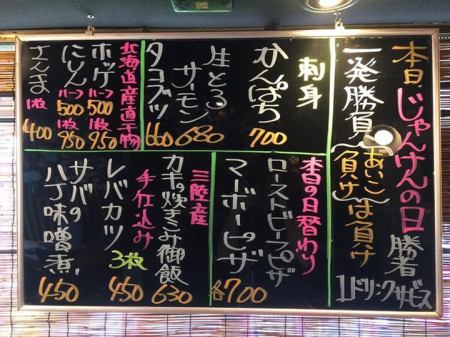 本日、じゃんけんの日
勝者
1ドリンクサービス
一発勝負〜
あいこ〜は負け
負け〜
刺身
かんぱち 700
生とろサーモン 680
タコブツ 660
北海道産直干物
ホッケ ハーフ 500 1枚 950
にしん ハーフ 500 1枚 950
さんま 1枚 400
本日の日替わり
ローストビーフピザ
マーボーピザ
各700
三陸産
カキの炊きこみ御飯 630
手仕込み
レバカツ 3枚 450
サバの八丁味噌煮 450